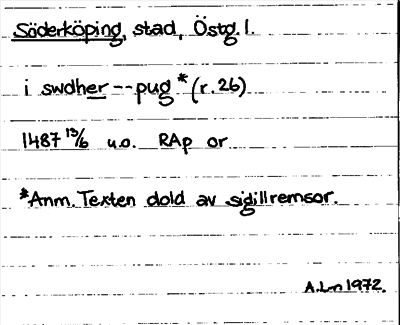 Söderköping, stad, Östg. l.
i swdher--pug * (r. 26)
1487 13/6 u.o. RAp or
*Anm. Texten dold av sigillremsor.
A.Ln 1972.